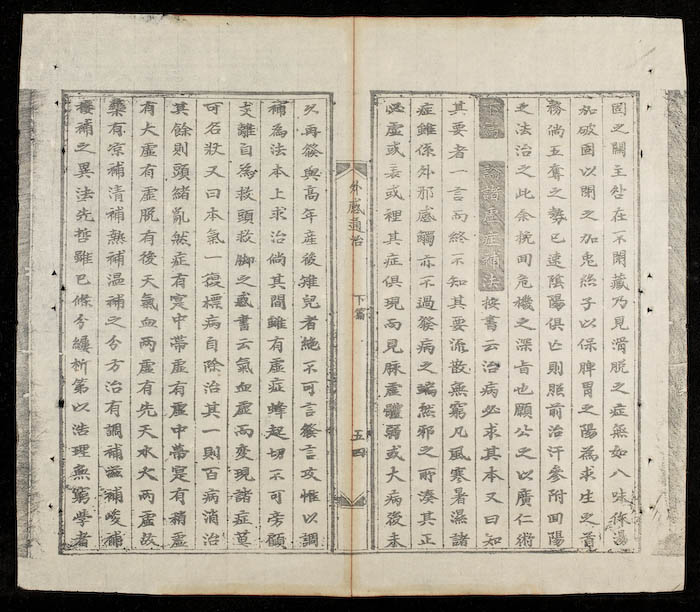 固之關主在一不閉藏乃見滑脫之症無如八味作湯
加破固以閉之加兎絲子以保脾胃之陽為求生之首
務倘五奪之勢已速陰陽俱亡則照前治汗參附回陽
之法治之此余挽回危機之深旨也願公之以廣仁術
諸虛症補法按書云治病必求其本又曰知
其要者一言而終不知其要流散無窮凡風寒暑濕諸
症雖係外邪感觸亦不過發病之端然邪之所湊其正
必虛或表或裡其症俱現而見脉虛體弱或大病後未
外感通治 下篇 五四
久再發與高年産後雉兒者絕不可言發言攻惟以調
補為法本上求治倘其間雖有虛症蜂起切不可旁顧
支離自為救頭救脚之惑書云氣血虛而変現諸症莫
可名狀又曰本氣一復標病自除治其一則百病消治
其餘則頭緒亂然症有寔中帶虛有虛中帶寔有稍虛
有大虛有虛脫有後天氣血兩虛有先天水火兩虛故
藥有凉補清補熱補溫補之分方治有調補滋補峻補
接補之異法先哲雖已條分縷析第以浩理無窮學者